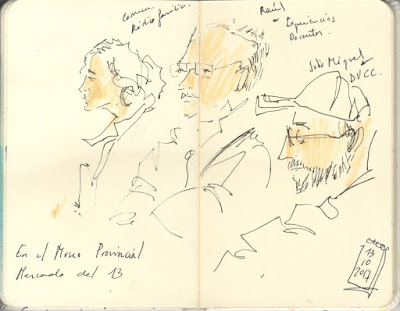 Carmen
Médico familia.
Raúl
Experiencias
Docentes.
Miguel
DUCC.
En el Museo Provincial
Mercado del 13
13
10
2017